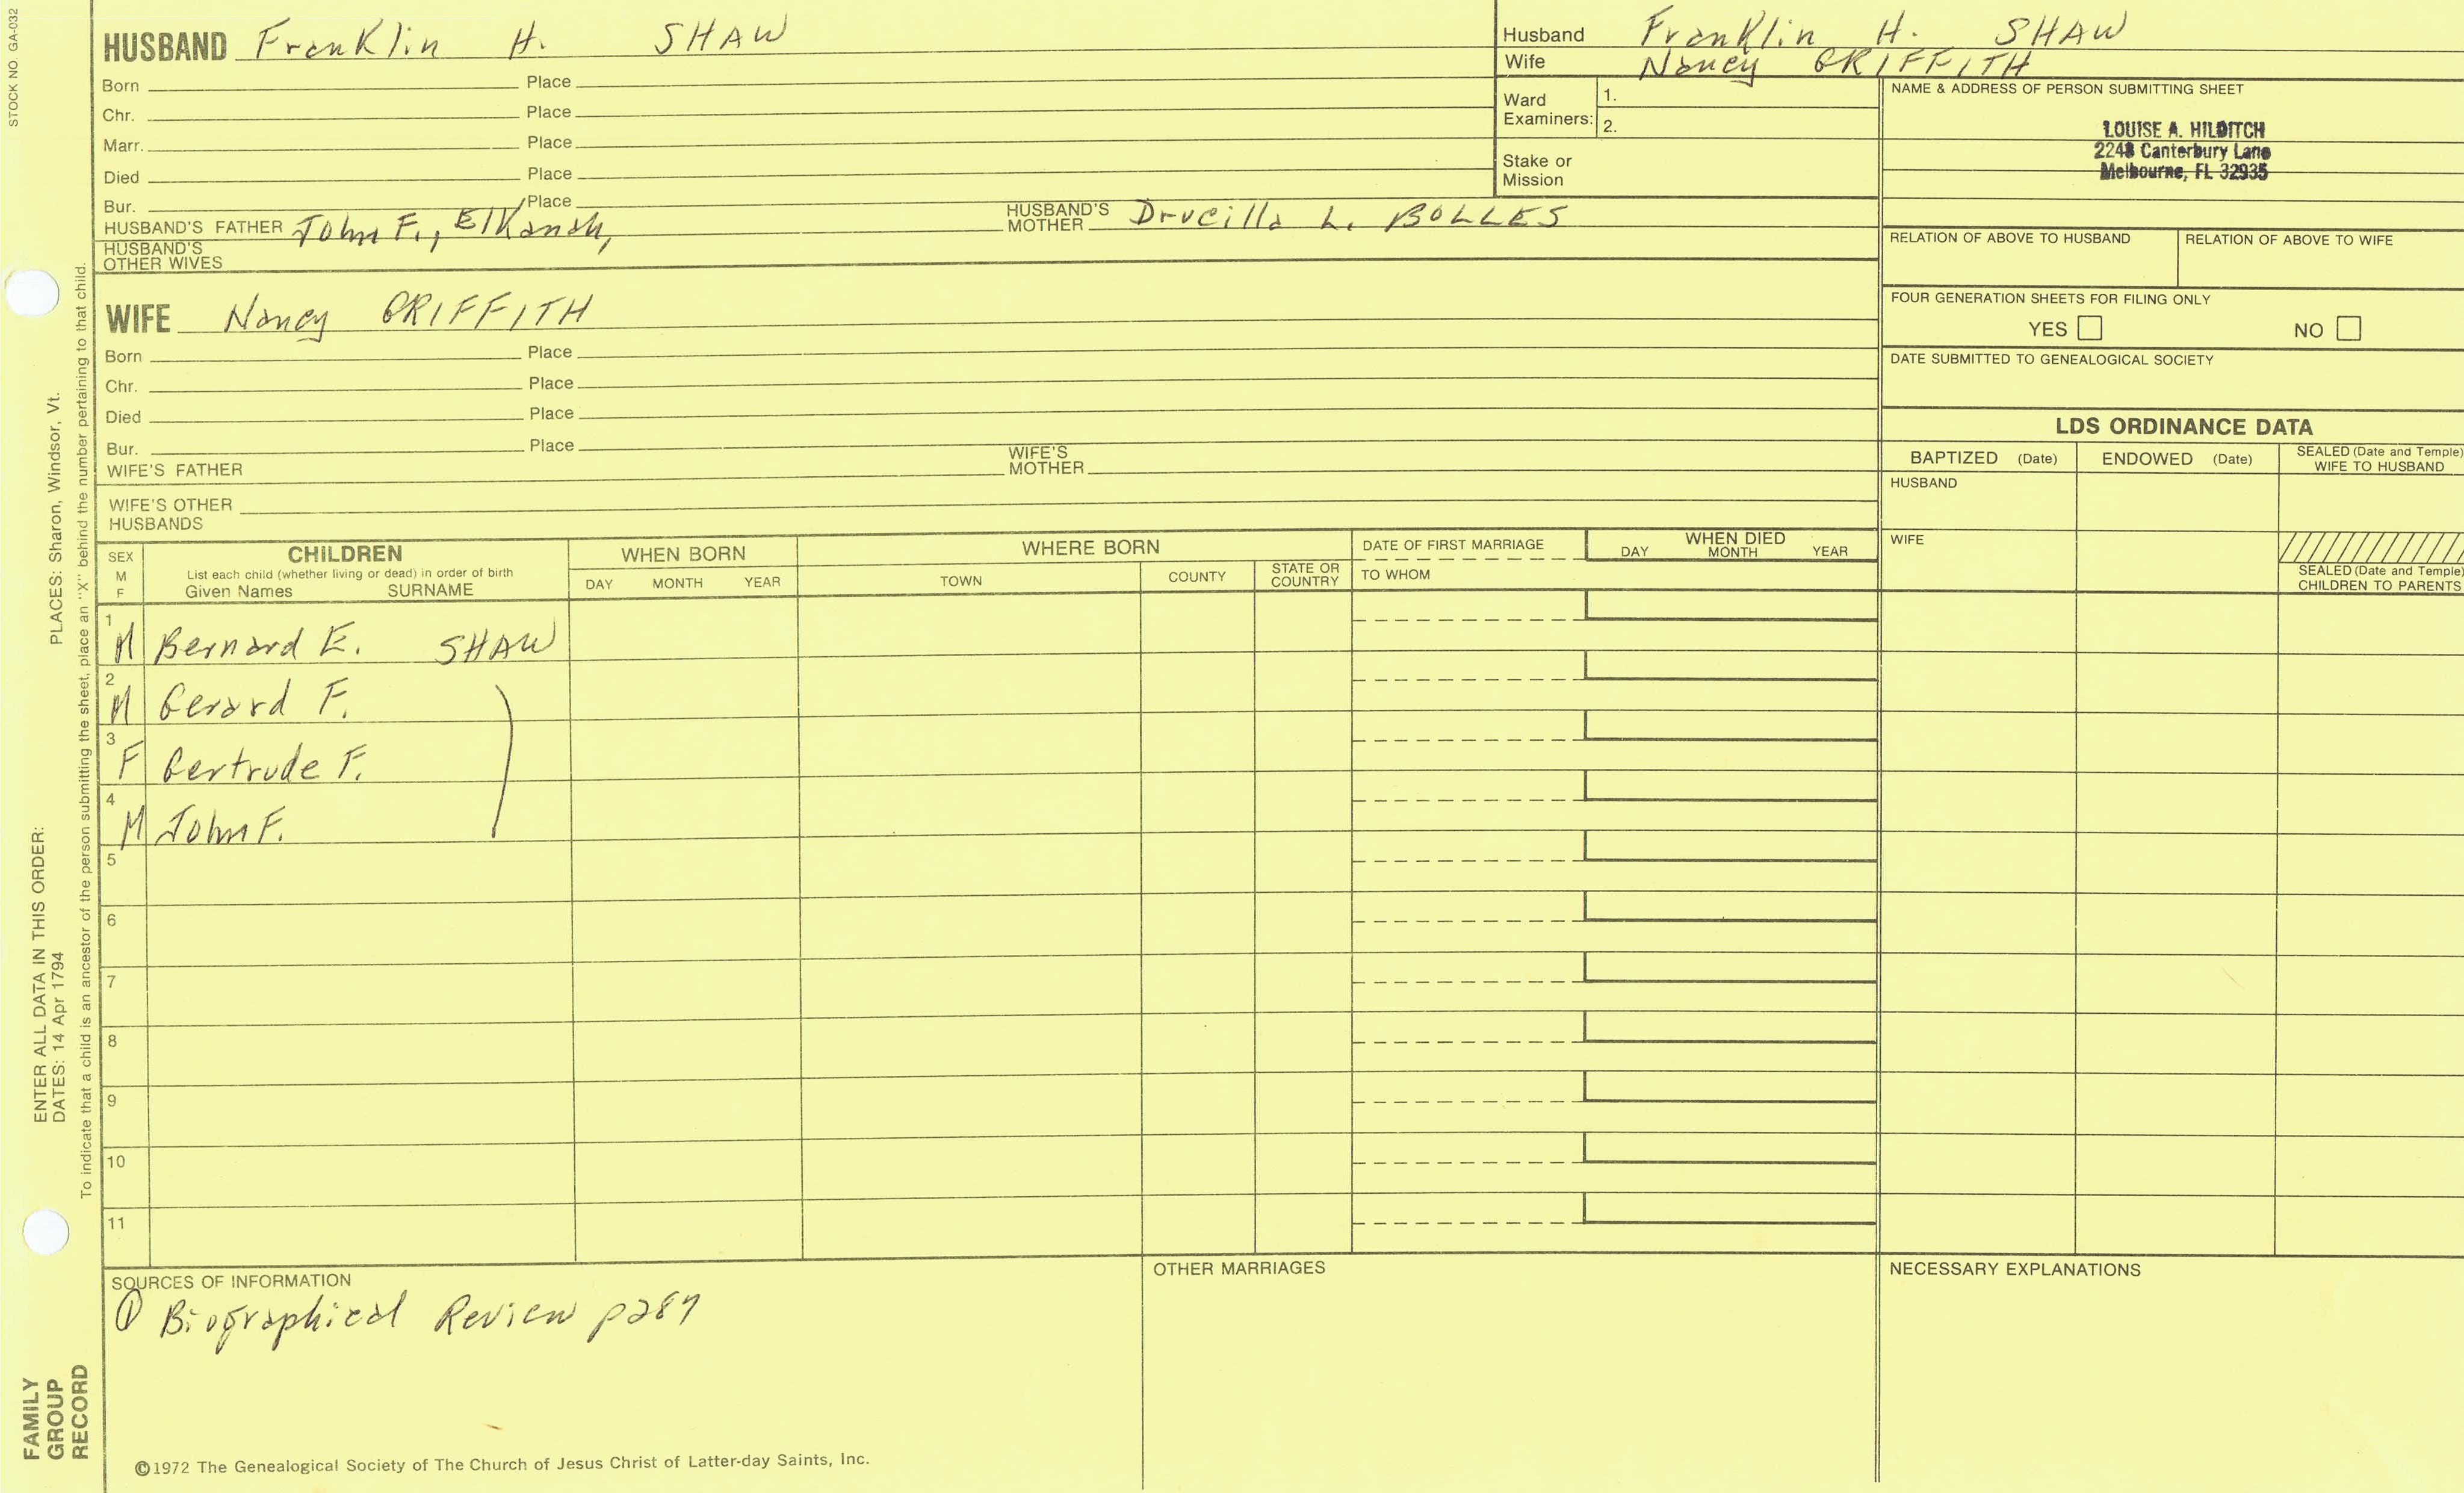 STOCK NO. GA-032
HUSBAND Franklin H. SHAW
Born Place
Chr. Place
Marr. Place
Died Place
Bur. Place
HUSBAND'S FATHER John F., Elkanah, HUSBAND'S MOTHER Drucilla L. BOLLES
HUSBAND'S OTHER WIVES
Husband Franklin H. SHAW
Wife Nancy GRIFFITH
Ward Examiners: 1.
2.
Stake or Mission
NAME & ADDRESS OF PERSON SUBMITTING SHEET
LOUISE A. HILDITCH
2248 Canterbury Lane
Melbourne, FL 32935
RELATION OF ABOVE TO HUSBAND RELATION OF ABOVE TO WIFE
FOUR GENERATION SHEETS FOR FILING ONLY
YES NO
DATE SUBMITTED TO GENEALOGICAL SOCIETY
WIFE Nancy GRIFFITH
Born Place
Chr. Place
Died Place
Bur. Place
WIFE'S FATHER WIFE'S MOTHER
WIFE'S OTHER HUSBANDS
LDS ORDINANCE DATA
BAPTIZED (Date) ENDOWED (Date) SEALED (Date and Temple) WIFE TO HUSBAND
HUSBAND
WIFE
SEALED (Date and Temple) CHILDREN TO PARENTS
SEX M F
CHILDREN
List each child (whether living or dead) in order of birth
Given Names SURNAME
WHEN BORN
DAY MONTH YEAR
WHERE BORN
TOWN COUNTY STATE OR COUNTRY
DATE OF FIRST MARRIAGE
TO WHOM
WHEN DIED
DAY MONTH YEAR
1 M Bernard E. SHAW
2 M Gerard F.
3 F Gertrude F.
4 M John F.
5
6
7
8
9
10
11
SOURCES OF INFORMATION
① Biographical Review p287
OTHER MARRIAGES
NECESSARY EXPLANATIONS
©1972 The Genealogical Society of The Church of Jesus Christ of Latter-day Saints, Inc.
FAMILY GROUP RECORD
ENTER ALL DATA IN THIS ORDER:
DATES: 14 Apr 1794 PLACES: Sharon, Windsor, Vt.
To indicate that a child is an ancestor of the person submitting the sheet, place an "X" behind the number pertaining to that child.